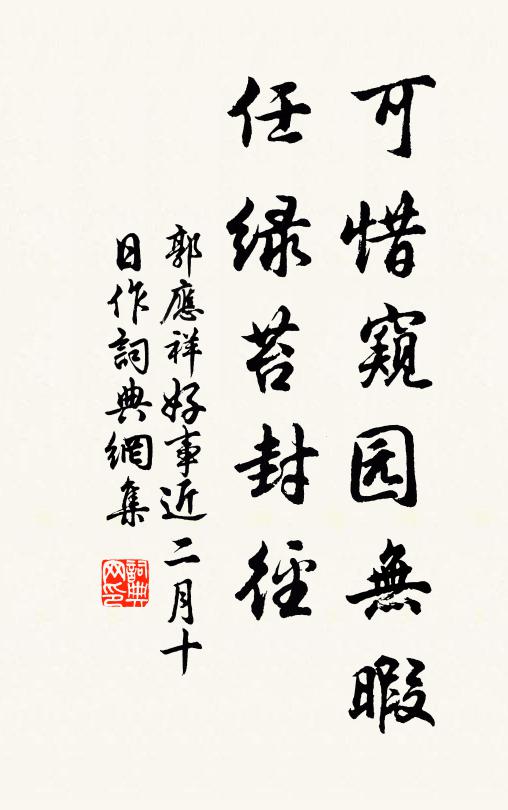 可惜窺园無暇
任绿苔封徑
郭應祥好事近二月十
日作詞典網集
詞典网印